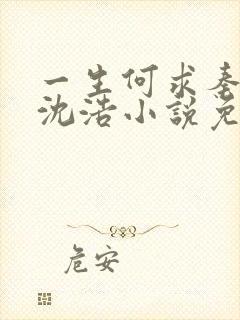 一生何求秦
沈浩小說免
危安